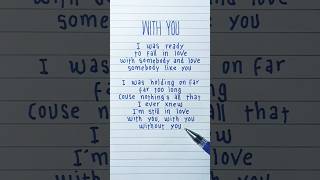 WITH YOU
I was ready
to fall in love
with somebody and love
somebody like you
I was holding on far
far too long
Couse nothing's all that
I ever knew
I'm still in love
with you, with you
without you